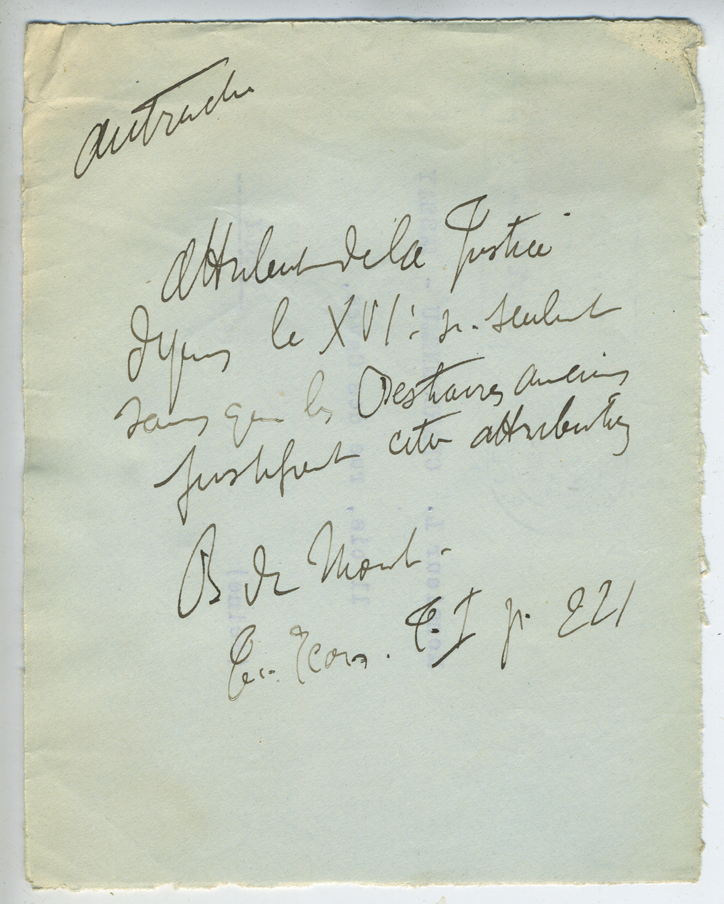 autruche
attribut de la Justice
depuis le XVIe s. seulement
sans que les Bestiaires anciens
justifient cette attribution
B de Mont.
T. I p. 221